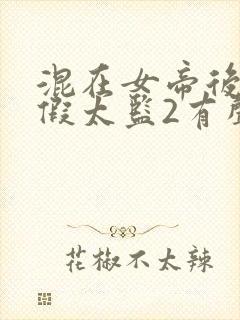 混在女帝後
假太監2有
花椒不太辣